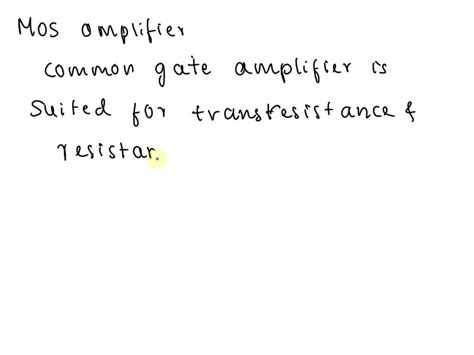 Mos amplifier
common gate amplifier is
suited for transresistance &
resistar.